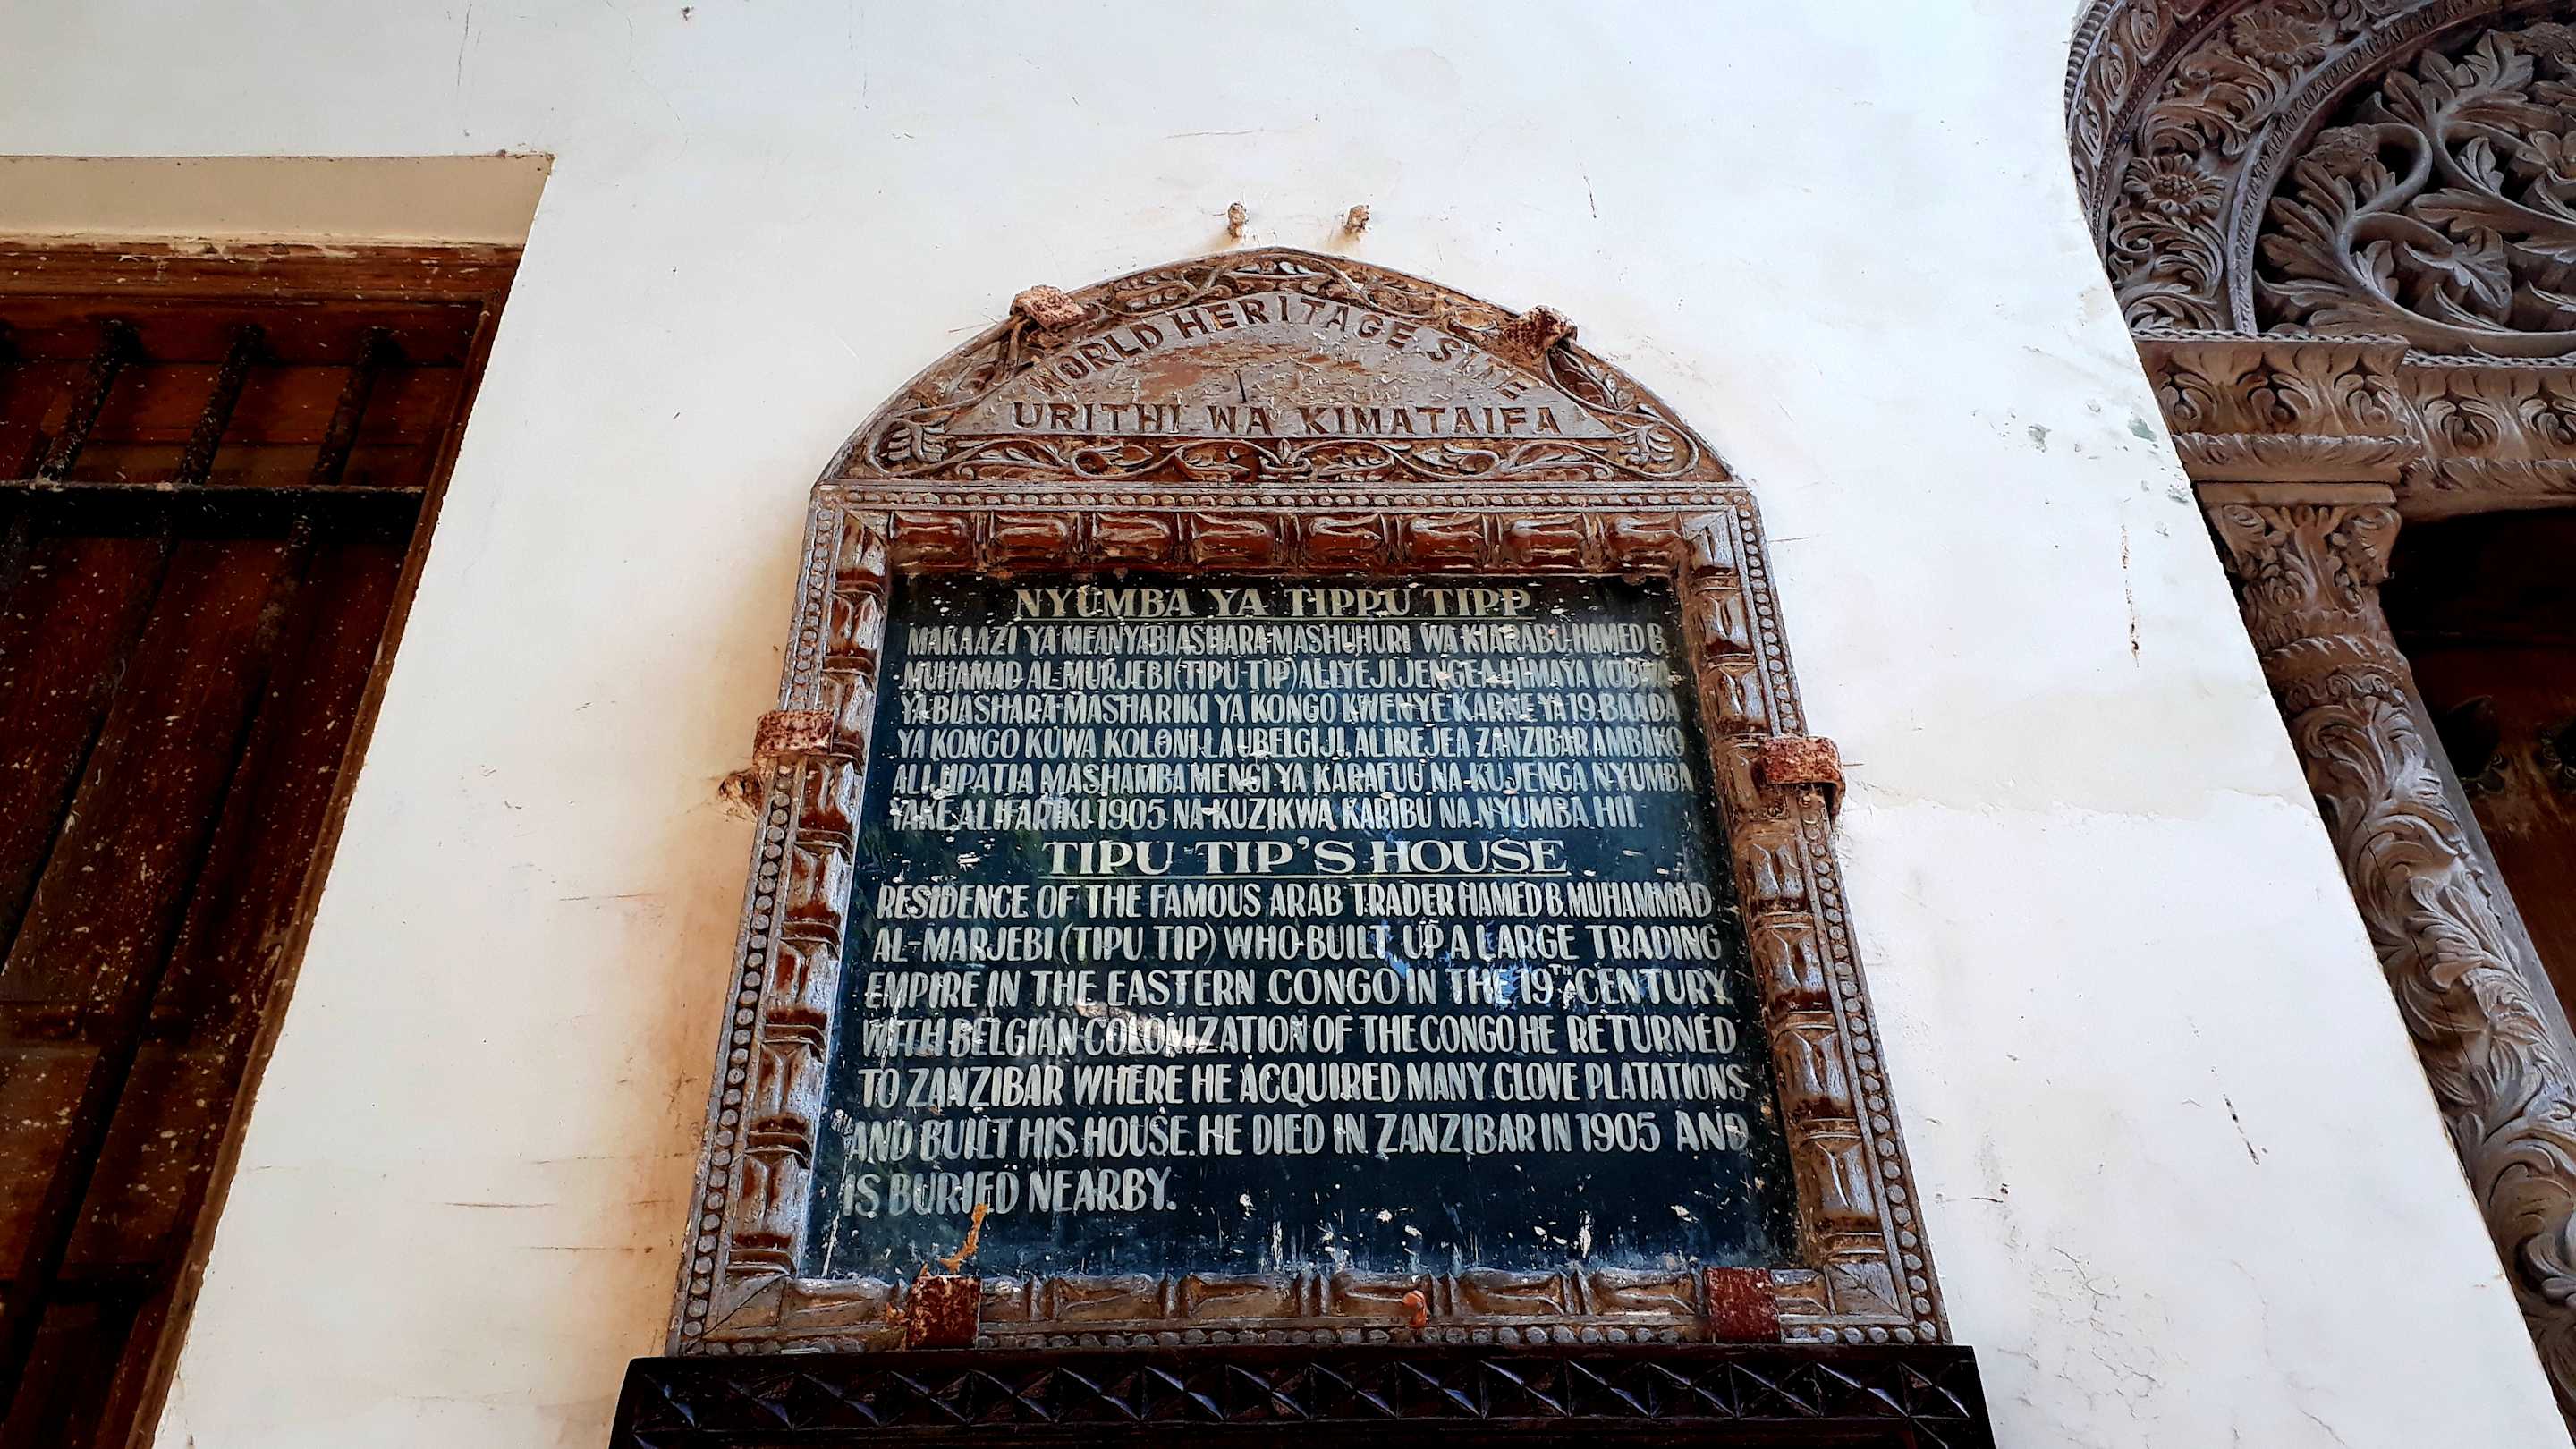 WORLD HERITAGE SITE
URITHI WA KIMATAIFA
NYUMBA YA TIPPU TIPP
MAKAAZI YA MFANYABIASHARA MASHUHURI WA KIARABU HAMED B.
MUHAMAD AL-MURJEBI (TIPU TIP) ALIYEJIJENGEA HIMAYA KUBWA
YA BIASHARA MASHARIKI YA KONGO KWENYE KARNE YA 19. BAADA
YA KONGO KUWA KOLONI LA UBELGIJI, ALIREJEA ZANZIBAR AMBAKO
ALIJIPATIA MASHAMBA MENGI YA KARAFUU NA KUJENGA NYUMBA
YAKE, ALIFARIKI 1905 NA KUZIKWA KARIBU NA NYUMBA HII.
TIPU TIP'S HOUSE
RESIDENCE OF THE FAMOUS ARAB TRADER HAMED B. MUHAMMAD
AL-MARJEBI (TIPU TIP) WHO BUILT UP A LARGE TRADING
EMPIRE IN THE EASTERN CONGO IN THE 19TH CENTURY
WITH BELGIAN COLONIZATION OF THE CONGO HE RETURNED
TO ZANZIBAR WHERE HE ACQUIRED MANY CLOVE PLATATIONS
AND BUILT HIS HOUSE. HE DIED IN ZANZIBAR IN 1905 AND
IS BURIED NEARBY.